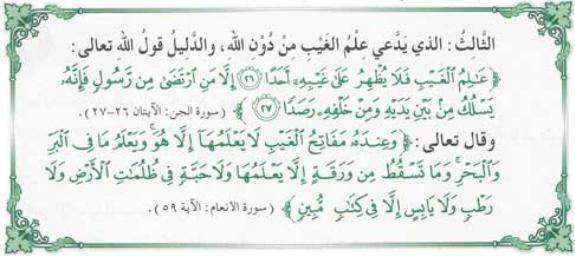 الثَّالِثُ : الذي يَدَّعي عِلْمَ الغَيْبِ مِنْ دُوْنِ الله، والدَّلِيلُ قولُ الله تعالى:
﴿ عَـٰلِمُ ٱلْغَيْبِ فَلَا يُظْهِرُ عَلَىٰ غَيْبِهِۦٓ أَحَدًا ۝٢٦ إِلَّا مَنِ ٱرْتَضَىٰ مِن رَّسُولٍ فَإِنَّهُۥ
يَسْلُكُ مِنۢ بَيْنِ يَدَيْهِ وَمِنْ خَلْفِهِۦ رَصَدًا ۝٢٧ ﴾ ( سورة الجن: الآيتان ٢٦-٢٧) .
وقال تعالى: ﴿ وَعِندَهُۥ مَفَاتِحُ ٱلْغَيْبِ لَا يَعْلَمُهَآ إِلَّا هُوَ ۚ وَيَعْلَمُ مَا فِى ٱلْبَرِّ
وَٱلْبَحْرِ ۚ وَمَا تَسْقُطُ مِن وَرَقَةٍ إِلَّا يَعْلَمُهَا وَلَا حَبَّةٍ فِى ظُلُمَـٰتِ ٱلْأَرْضِ وَلَا
رَطْبٍ وَلَا يَابِسٍ إِلَّا فِى كِتَـٰبٍ مُّبِينٍ ﴾ ( سورة الانعام: الآية ٥٩ ) .